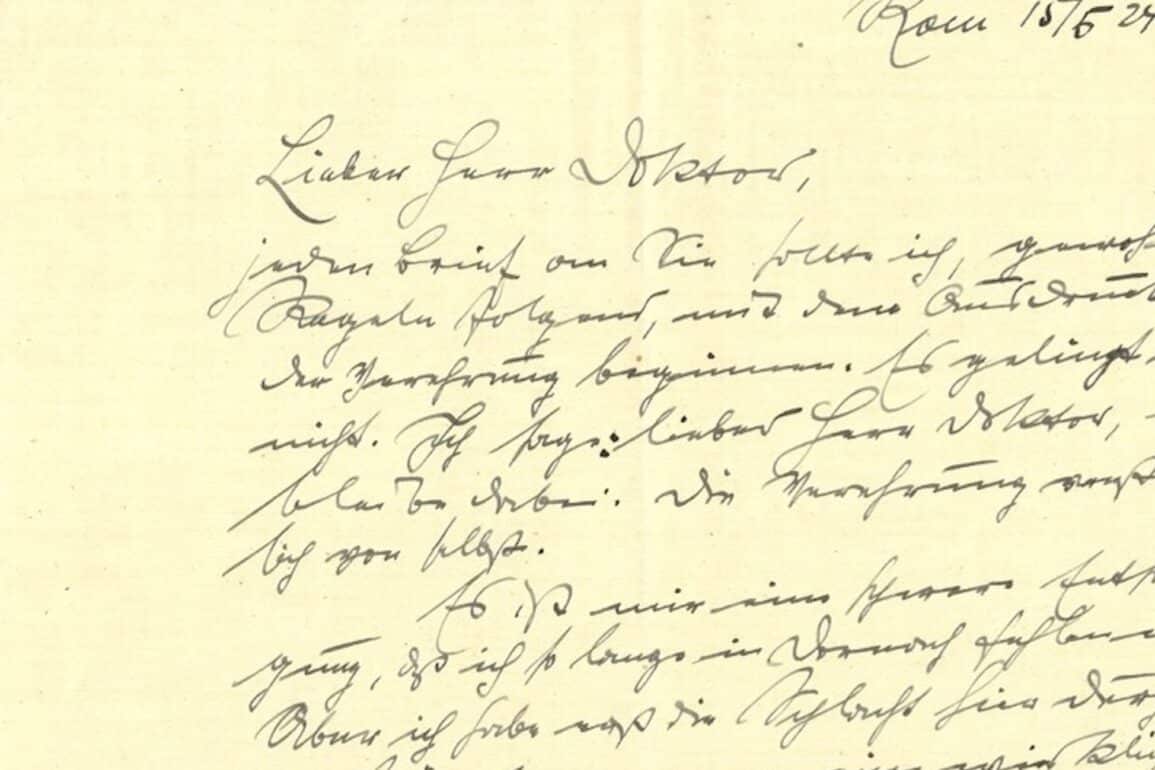 Rom 15/5 24
Lieber Herr Doktor,
jeden Brief an Sie sollte ich, gewoh
Regeln folgend, mit dem Ausdruck
der Verehrung beginnen. Es gelingt
nicht. Ich sage: lieber Herr Doktor,
bleibe dabei. Die Verehrung verst
sich von selbst.
Es ist mir eine schwere Entsa
gung, daß ich so lange in Dornach fehlen
Aber ich habe erst die Schlacht hier